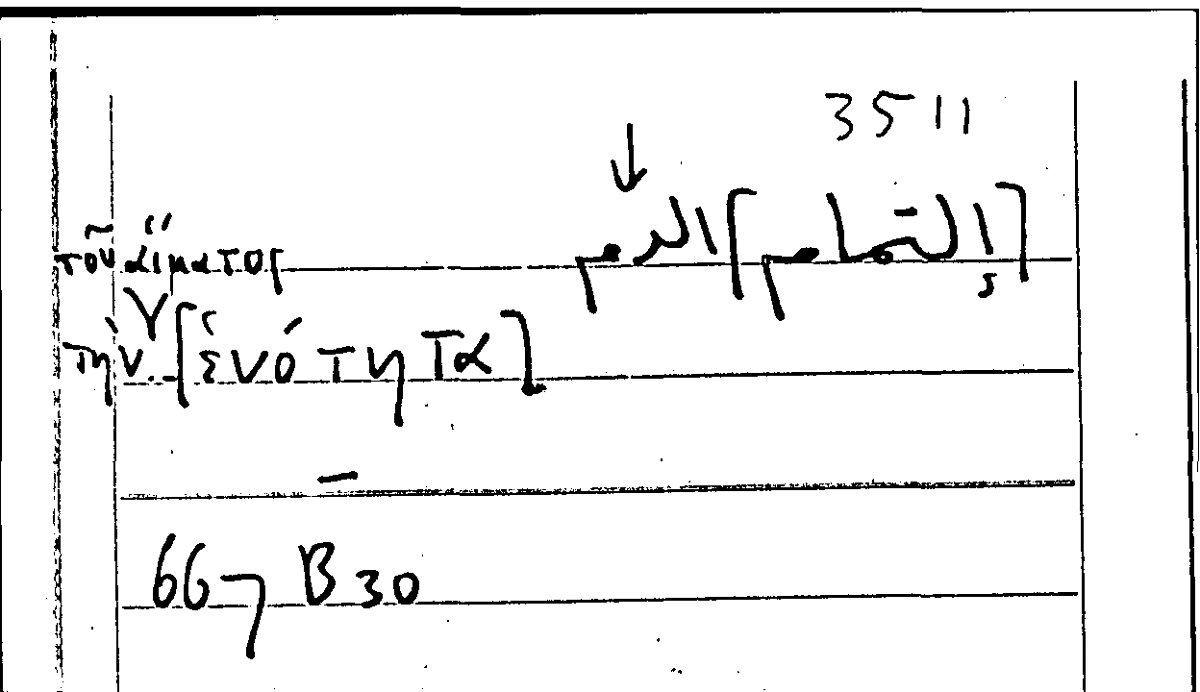 3511
↓
[إلتمام] الدم
τοῦ αἵματος
τὴν [ἑνότητα]
667 B 30